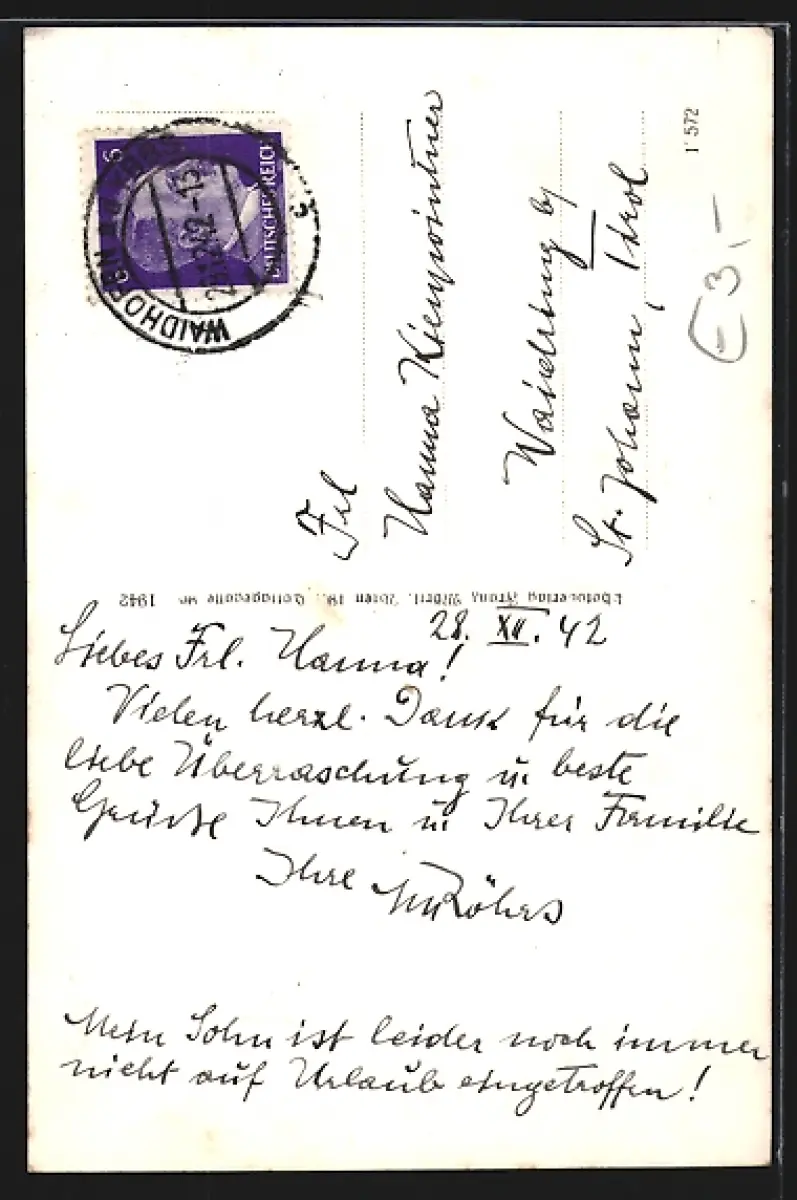 6
DEUTSCHES REICH
WAIDHOFEN
28.12.42.-13
c
1' 572
€ 3,-
Frl
Hanna Kienpointner
Waidring by
St. Johann, Tirol
1942
28. XII. 42
Liebes Frl. Hanna!
Vielen herzl. Dank für die
liebe Überraschung u. beste
Grüsse Ihnen u. Ihrer Familie
Ihre Röhrs
Mein Sohn ist leider noch immer
nicht auf Urlaub eingetroffen!